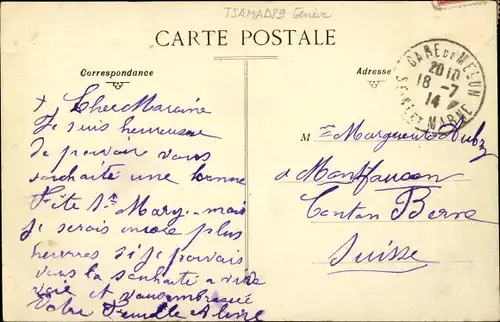 TSAMAD89 Genève
CARTE POSTALE
Correspondance
Adresse
GARE DE MELUN
20 10
18 -7
14
SEINE ET MARNE
+ Cher Maraine
Je suis heureuse
de pouvoir vous
souhaité une bonne
Fête Ste Mary. mais
je serais encore plus
heureuse si je pouvais
vous la souhaité a vive
voie et
Votre Filleule Aline
M
Marguerite
a Montfaucon
Canton Berne
Suisse